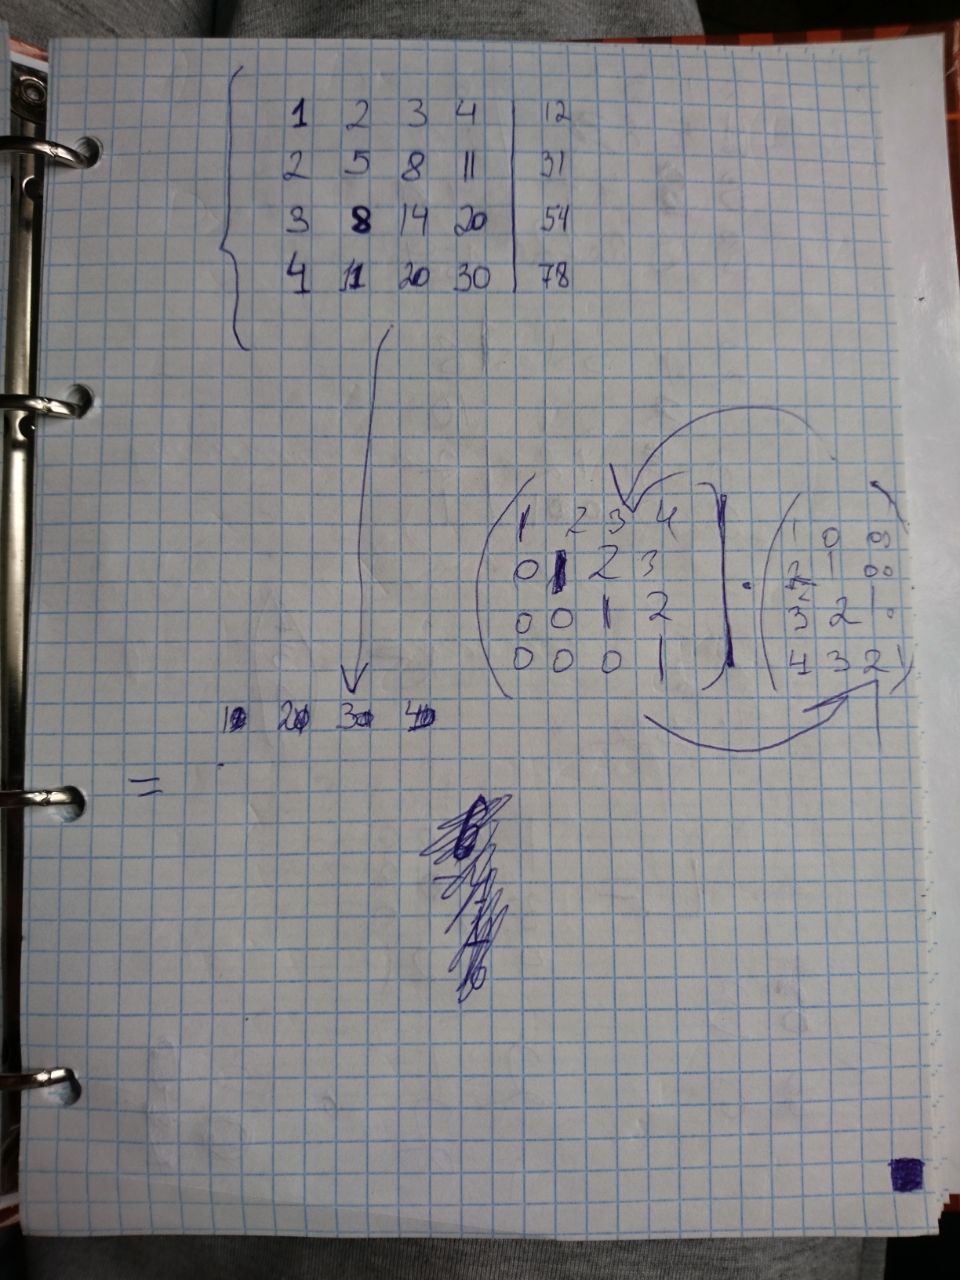 1 2 3 4 | 12
2 5 8 11 | 31
3 8 14 20 | 54
4 11 20 30 | 78
1 2 3 4
0 1 2 3
0 0 1 2
0 0 0 1
·
1 0 0
2 1 0 0
3 2 1 0
4 3 2 1
=